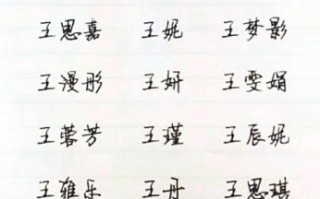 王思嘉 王妮 王梦影
王漫彤 王妍 王雯娟
王蓉芳 王瑾 王辰妮
王雅乐 王丹 王思琪